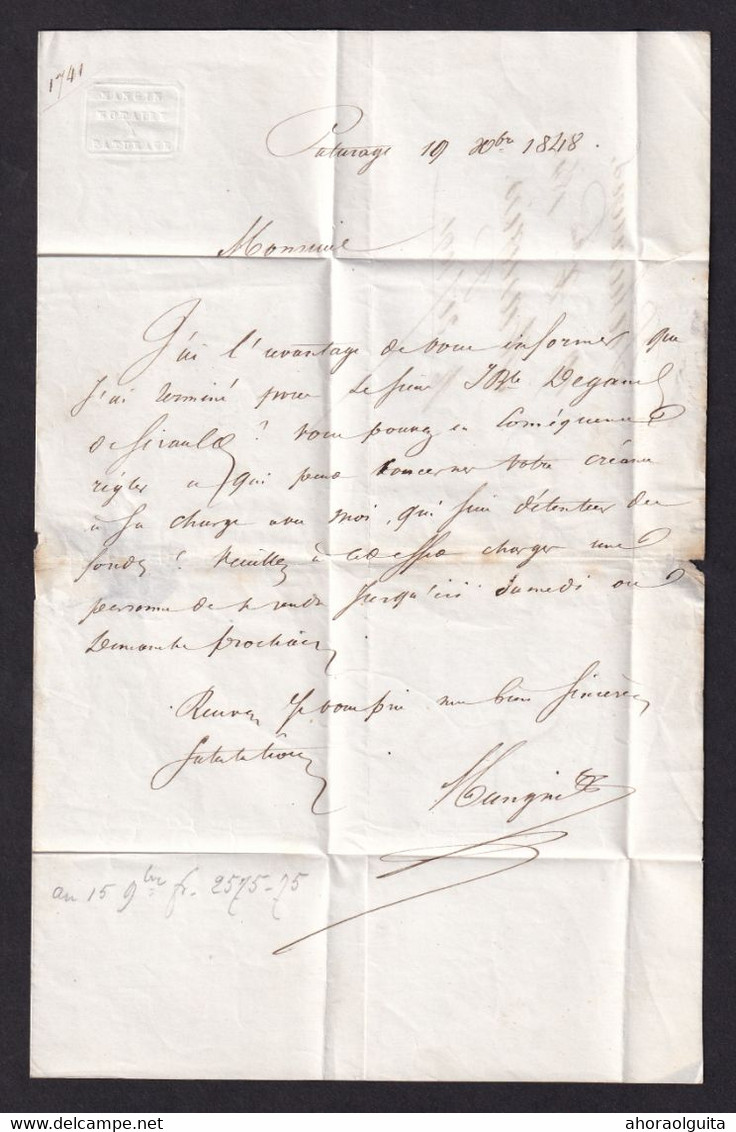 1741
NOTAIRE
A
PATURAGE
Paturage 19 Xbre 1848.
Monsieur
J'ai l'avantage de vous informer que
j'ai terminé pour le sieur Degand
de Sirault ! vous pouvez en conséquence
régler ce qui peut concerner votre créance
à sa charge avec moi, qui suis détenteur des
fonds ! Veuillez à cet effet charger une
personne de se rendre jusqu'ici Samedi ou
Dimanche prochain
Recevez je vous prie mes bien sincères
salutations
au 15 9bre fr. 2575-75
ahoraolguita